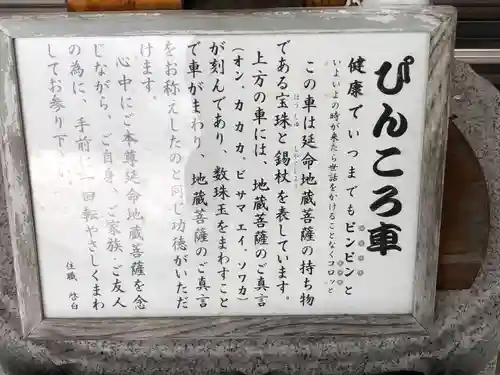 ぴんころ車
健康でいつまでもピンピンと
いよいよの時が来たら世話をかけることなくコロッと
この車は延命地蔵菩薩の持ち物
である宝珠と錫杖を表しています。
ほうしゅ
しゃくじょう
上方の車には、地蔵菩薩のご真言
(オン、カカカ、ビサマエイ、ソワカ)
が刻んであり、数珠玉をまわすこと
で車がまわり、地蔵菩薩のご真言
をお称えしたのと同じ功徳がいただ
けます。
心中にご本尊延命地蔵菩薩を念
じながら、ご自身、ご家族・ご友人
の為に、手前に一回転やさしくまわ
してお参り下さい。
住職 啓白